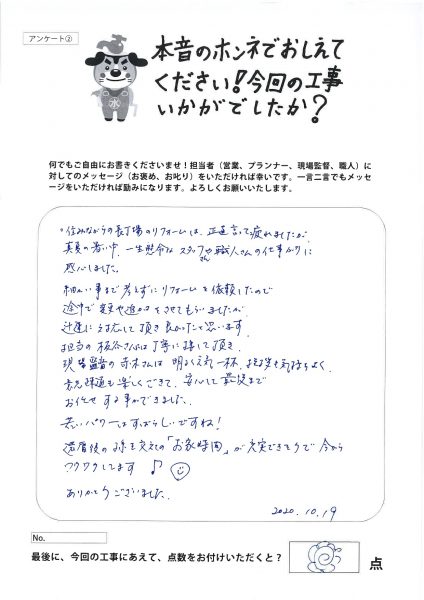 アンケート②
本音のホンネでおしえて
ください!今回の工事
いかがでしたか?
水
何でもご自由にお書きくださいませ!担当者(営業、プランナー、現場監督、職人)に
対してのメッセージ(お褒め、お叱り)をいただければ幸いです。一言二言でもメッセ
ージをいただければ励みになります。よろしくお願いいたします。
・住みながらの長丁場のリフォームは、正直言って疲れましたが
真夏の暑い中、一生懸命な スタッフや職人さんの仕事がりに
さん
感心しました。
細かい事まで考えずにリフォームを依頼したので
途中で変更や追加をさせてもらいましたが
迅速に対応して頂き良かったと思います。
担当の さんは丁寧に接して頂き、
現場監督の赤木さんは 明るく元気一杯、挨拶も気持ちよく、
意思疎通も楽しくできて、安心して最後まで
お任せする事ができました。
若いパワーはすばらしいですね!
還暦後の孫を交えての「お家時間」が充実できそうで今から
ワクワクしてます ♪
ありがとうございました。
2020.10.19
No.
最後に、今回の工事にあえて、点数をお付けいただくと? 点